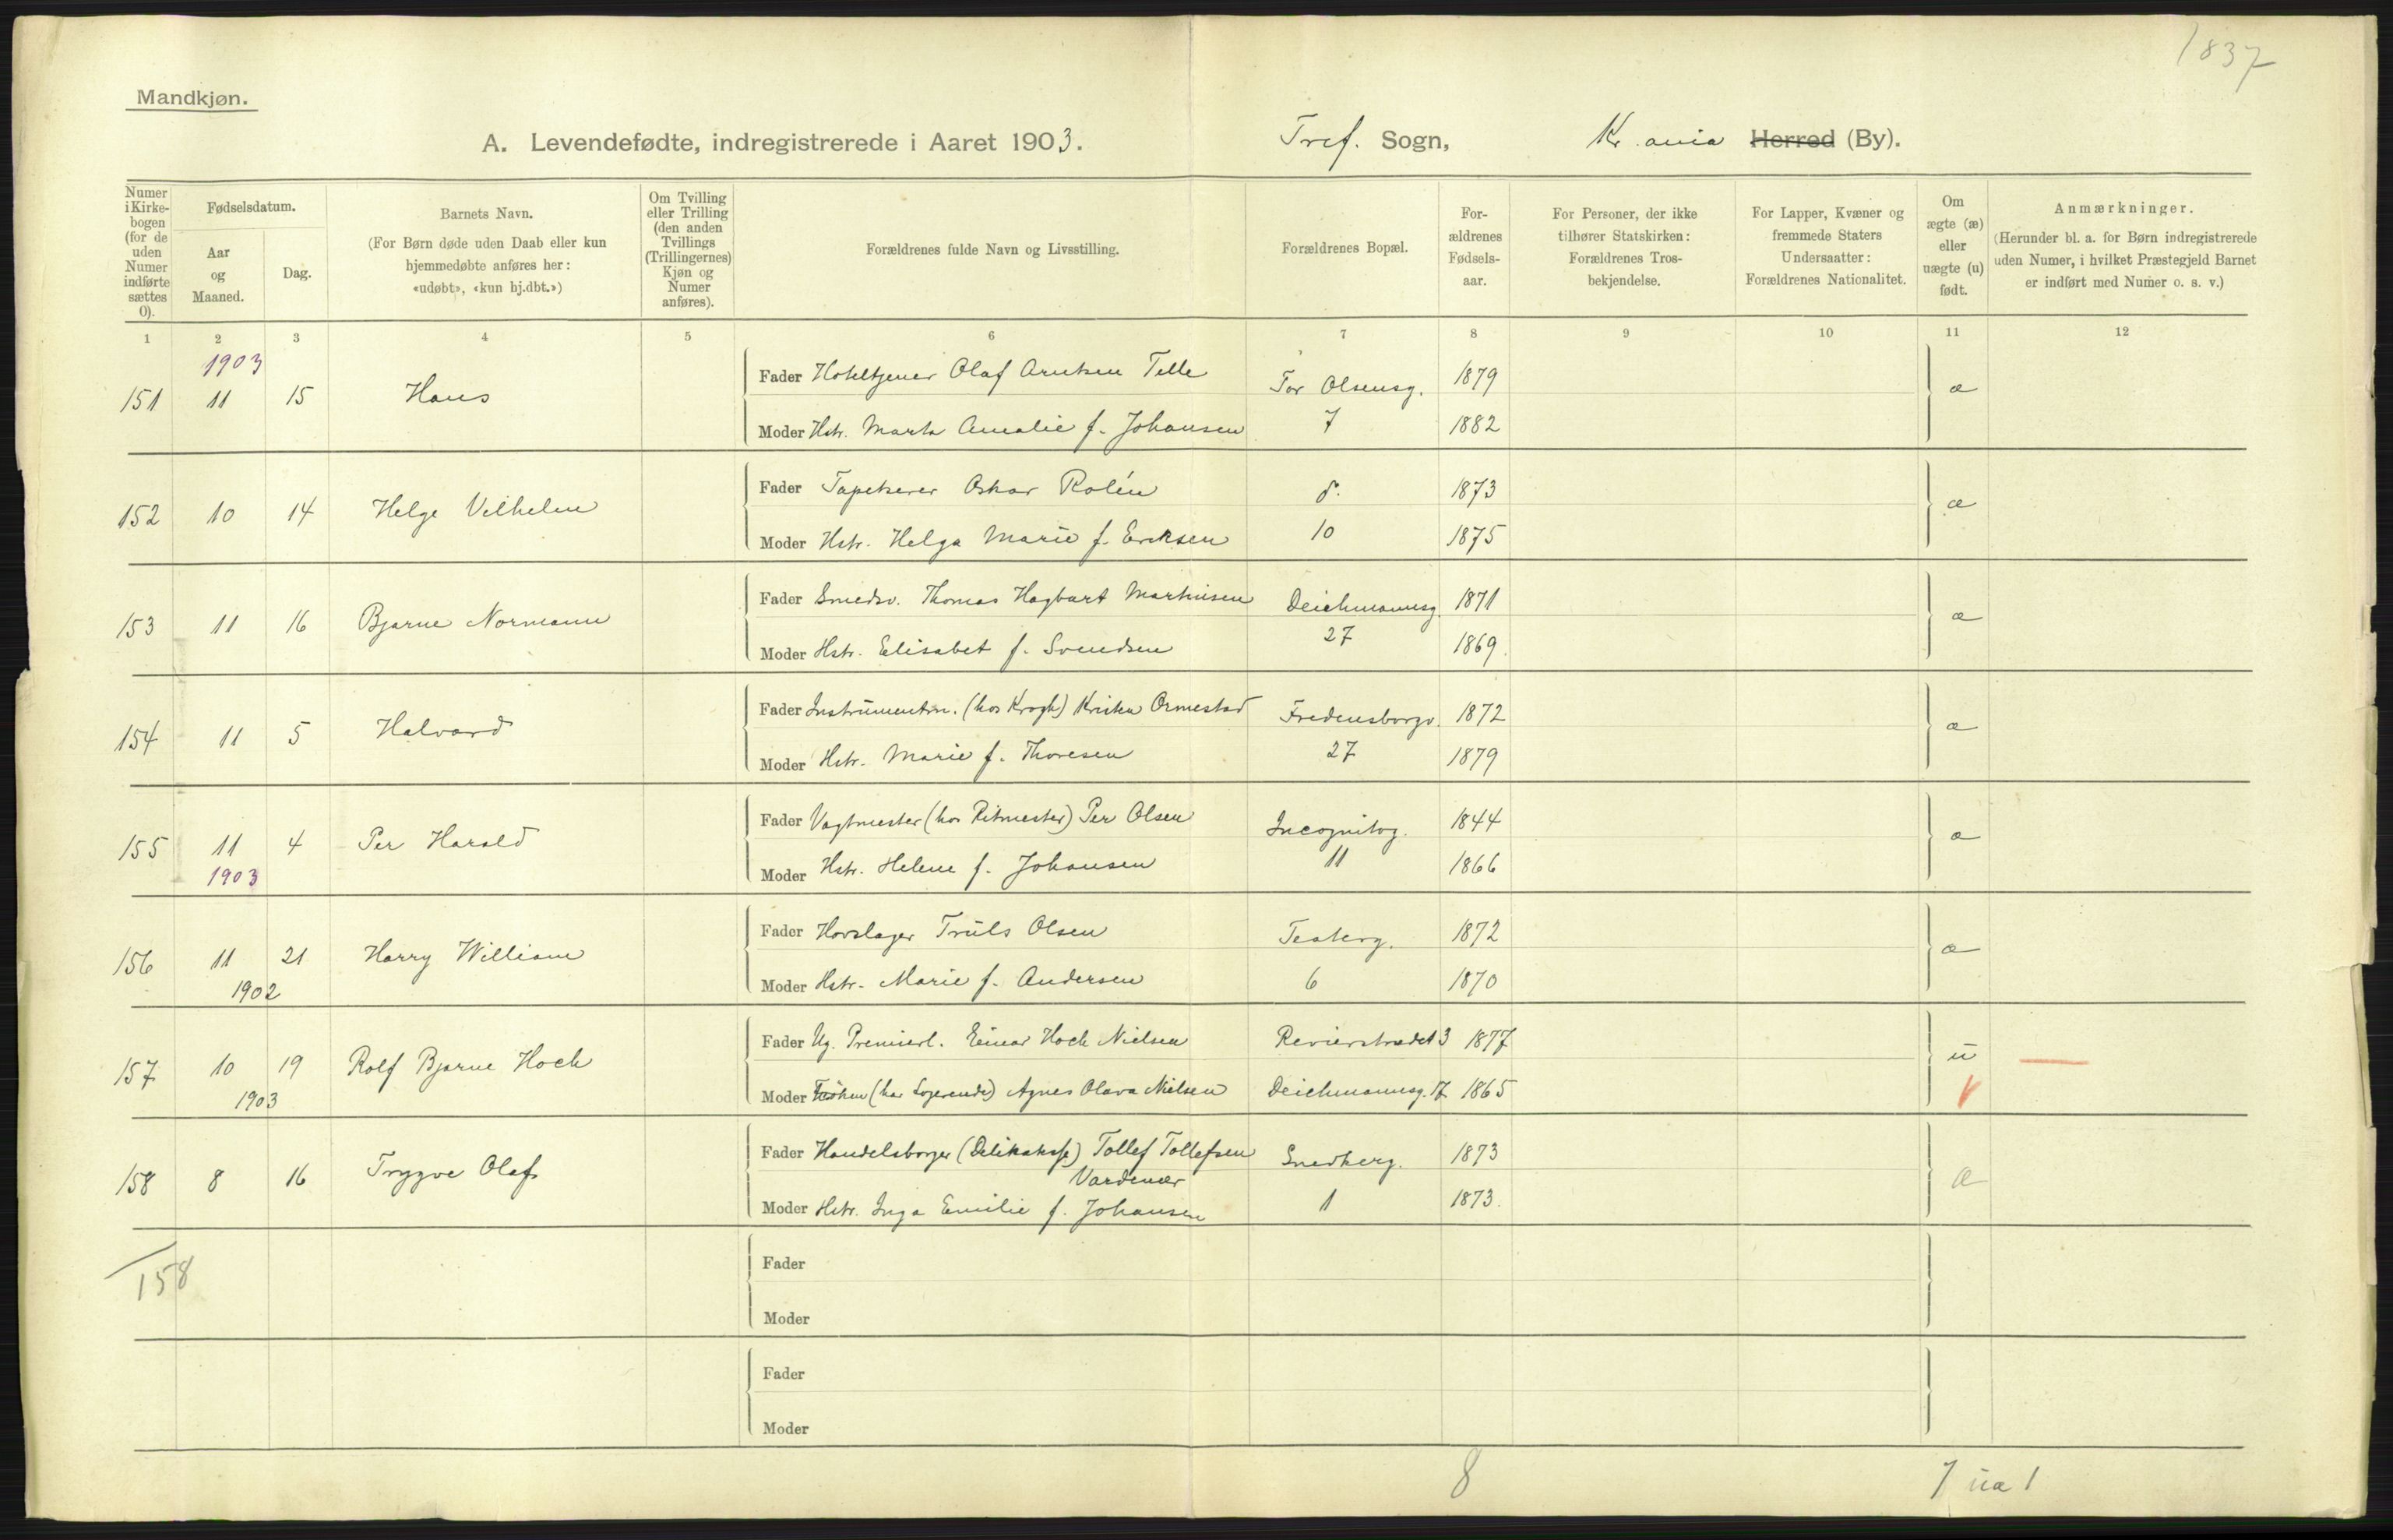 1837
Mandkjøn.
A. Levendefødte, indregistrerede i Aaret 1903. Tref. Sogn, Kr.ania Herred (By).
Numer i Kirkebogen (for de uden Numer indførte sættes 0).
Fødselsdatum.
Aar og Maaned.
Dag.
Barnets Navn.
(For Børn døde uden Daab eller kun hjemmedøbte anføres her: «udøbt», «kun hj.dbt.»)
Om Tvilling eller Trilling (den anden Tvillings (Trillingernes) Kjøn og Numer anføres).
Forældrenes fulde Navn og Livsstilling.
Forældrenes Bopæl.
Forældrenes Fødselsaar.
For Personer, der ikke tilhører Statskirken: Forældrenes Trosbekjendelse.
For Lapper, Kvæner og fremmede Staters Undersaatter: Forældrenes Nationalitet.
Om ægte (æ) eller uægte (u) født.
Anmærkninger.
(Herunder bl. a. for Børn indregistrerede uden Numer, i hvilket Præstegjeld Barnet er indført med Numer o. s. v.)
1 2 3 4 5 6 7 8 9 10 11 12
1903
151 11 15 Hans Fader Hoteltjener Olaf Arntsen Telle Tor Olsensg. 1879 æ
Moder Hstr. Marta Amalie f. Johansen 7 1882
152 10 14 Helge Vilhelm Fader Tapetserer Oskar Rolén d. 1873 æ
Moder Hstr. Helga Marie f. Eriksen 10 1875
153 11 16 Bjarne Normann Fader Smedsv. Thomas Hagbart Martinisen Deichmannsg. 1871 æ
Moder Hstr. Elisabet f. Svendsen 27 1869
154 11 5 Halvard Fader Instrumentm. (hos Krogh) Kristen Ormestad Fredensborgv. 1872 æ
Moder Hstr. Marie f. Thoresen 27 1879
155 11 4 Per Harald Fader Vagtmester (hos Ritmester) Per Olsen Incognitog. 1844 æ
1903 Moder Hstr. Helene f. Johansen 11 1866
156 11 21 Harry William Fader Hovslager Truls Olsen Teaterg. 1872 æ
1902 Moder Hstr. Marie f. Andersen 6 1870
157 10 19 Rolf Bjarne Hoch Fader Ug. Premierl. Einar Hoch Nielsen Revierstrædet 3 1877 u
1903 Moder Frøken (har Logerende) Agnes Olava Nielsen Deichmannsg. 17 1865
158 8 16 Trygve Olaf Fader Handelsborger (Delikatesse) Tollef Tollefsen Snedkerg. 1873 æ
Vardenær
Moder Hstr. Inga Emilie f. Johansen 1 1873.
158
Fader
Moder
Fader
Moder
8 7 1